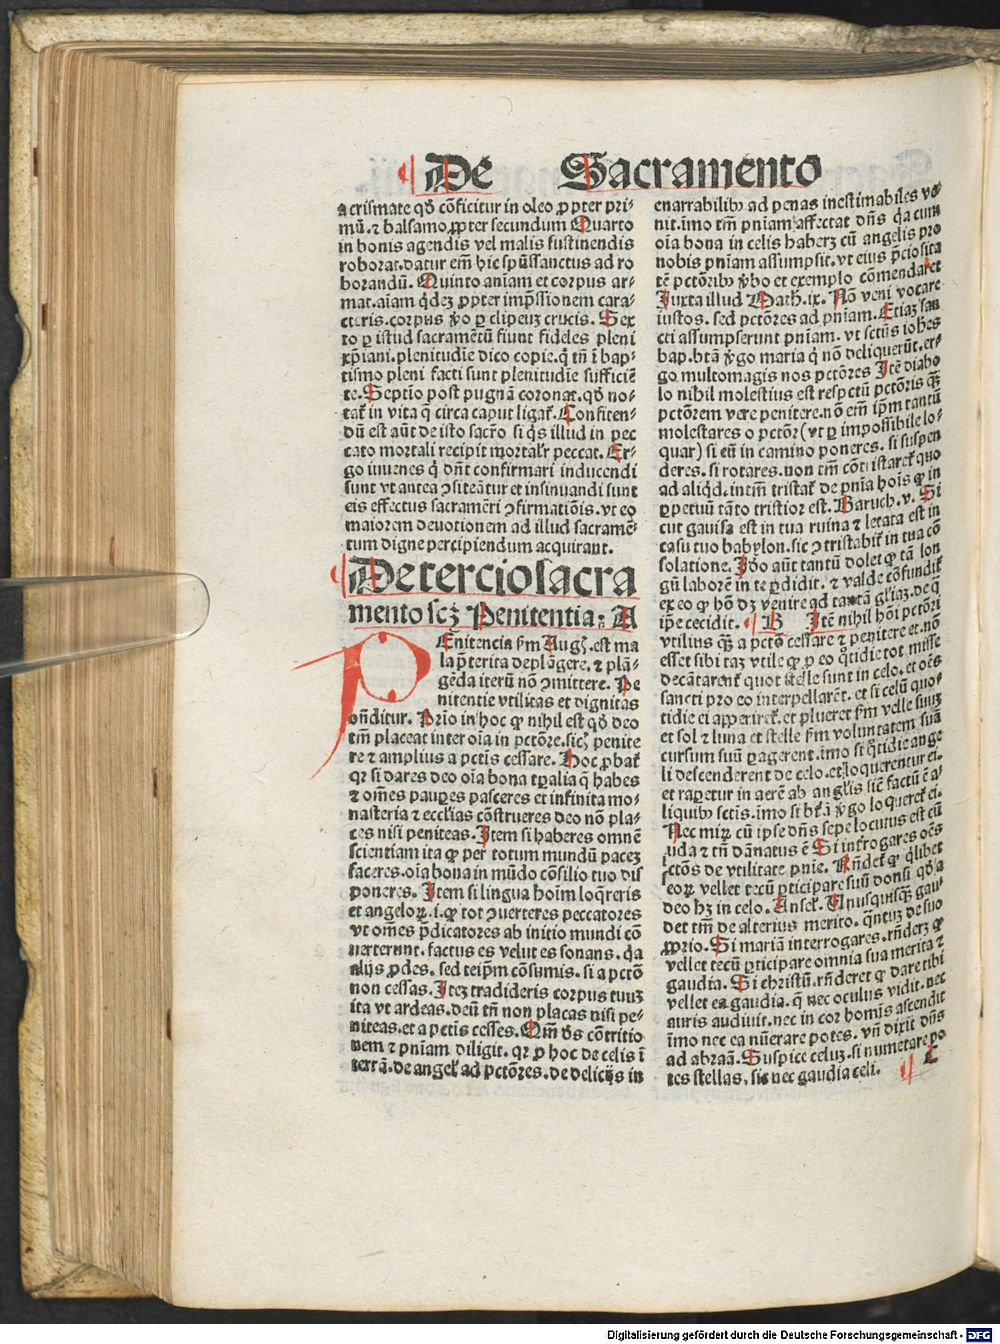 De Sacramento
a crismate qđ cōficitur in oleo ꝓpter pri-
mū. ⁊ balsamo ꝓpter secundum Quarto
in bonis agendis vel malis sustinendis
roborat. datur em̄ hic spūssanctus ad ro
borandū. Quinto aniam et corpus ar-
mat. aiam q̇dez ꝓpter imp̄ssionem cara-
cteris. corpus ꝟo ꝑ clipeuz crucis. Sex
to ꝑ istud sacramētū fiunt fideles pleni
xp̄iani. plenitudīe dico copie. q̄ tn̄ ī bap-
tismo pleni facti sunt plenitudīe sufficiē
te. Septīo post pugnā coronat. qđ no-
tat̄ in vita q̄ circa caput ligat̄. Confiten-
dū est aūt de isto sacr̄o si q̇s illud in pec
cato mortali recipit mortalr̄ peccat. Er-
go iuuenes q̄ dn̄t confirmari inducendi
sunt vt antea ꝯfiteātur et insinuandi sunt
eis effectus sacramēti ꝯfirmatiōis. vt eo
maiorem deuotionem ad illud sacramē-
tum digne percipiendum acquirant.
De tercio sacra
mento scꝫ Penitentia: A
PEnitencia ẜm Augꝰ. est ma
la p̄terita deplāgere. ⁊ plā-
gēda iterū nō ꝯmittere. Pe
nitentie vtilitas et dignitas
on̄ditur. Prīo in hoc ꝙ nihil est qđ deo
tm̄ placeat inter oīa in pctōre. sicꝫ penite
re ⁊ amplius a pctīs cessare. Hoc ꝓbat̄
qꝛ si dares deo oīa bona tꝑalia q̄ habes
⁊ om̄es pauꝑes pasceres et infinita mo-
nasteria ⁊ eccl̄ias cōstrueres deo nō pla-
ces nisi peniteas. Item si haberes omnē
scientiam ita ꝙ per totum mundū pacez
faceres. oīa bona in mūdo cōsilio tuo dis
poneres. Item si lingua hoīm loq̄reris
et angeloꝝ. i. ꝙ tot ꝯuerteres peccatores
vt om̄es p̄dicatores ab initio mundi cō
uerterunt. factus es velut es sonans. q̇a
alijs ꝓdes. sed teip̄m cōsumis. si a pctō
non cessas. Itez tradideris corpus tuuz
ita vt ardeas. deū tn̄ non placas nisi pe-
niteas. et a pctīs cesses. Qm̄ ds̄ cōtritio
nem ⁊ pn̄iam diligit. qꝛ ꝓ hoc de celis ī
terrā. de angel̄ ad pctōres. de delicijs in
enarrabilibꝰ ad penas inestimabiles ve-
nit. imo tm̄ pn̄iam affectat dn̄s q̇a cum
oīa bona in celis haberꝫ cū angelis pro
nobis pn̄iam assumpsit. vt eius p̄ciosita
tē pctōribꝰ ꝟbo et exemplo cōmendaret
Juxta illud Math. ix. Nō veni vocare
iustos. sed pctōres ad pn̄iam. Etiaz san
cti assumpserunt pn̄iam. vt sctūs iohes
bap. btā ꝟgo maria q̇ nō deliquerūt. er-
go multomagis nos pctōres Itē diabo
lo nihil molestius est respctū pctōris q̄ꝫ
pctōrem vere penitere. nō em̄ ip̄m tantū
molestares o pctōr (vt ꝑ impossibile lo-
quar) si eū in camino poneres. si suspen
deres. si rotares. non tm̄ cōtristaret̄ quo
ad aliq̇d. intm̄ tristat̄ de pn̄ia hoīs ꝙ in
ꝑpetuū tāto tristior est. Baruch. v. Si
cut gauisa est in tua ruina ⁊ letata est in
casu tuo babylon. sic ꝯtristabit̄ in tua cō
solatione. Ideo aūt tantū dolet ꝙ tā lon
gū laborē in te ꝑdidit. ⁊ valde cōfundit̄
ex eo ꝙ hō dꝫ venire ad tantā gl̄iaz. de q̄
ip̄e cecidit. B Itē nihil hoī pctōri
vtilius q̄ꝫ a pctō cessare ⁊ penitere et. nō
esset sibi taz vtile ꝙ ꝓ eo q̇tidie tot misse
decātarent̄ quot stelle sunt in celo. et oēs
sancti pro eo interpellarēt. et si celū quo-
tidie ei apperiret̄. et plueret ẜm velle suuz
et sol ⁊ luna et stelle ẜm voluntatem suā
cursum suū ꝑagerent. imo si q̇tidie ange
li descenderent de celo. et loquerentur ei.
et rapetur in aerē ab angl̄is sic̄ factū ē a-
liquibꝰ sctīs. imo si bt̄ā ꝟgo loqueret̄ ei.
Nec miꝝ cū ipse dn̄s sepe locutus est cū
iuda ⁊ tn̄ dānatus ē Si intrrogares oēs
sctōs de vtilitate pn̄ie. Rn̄det̄ ꝙ q̇libet
eoꝝ vellet tecū ꝑticipare suū donsi qđ a
deo hꝫ in celo. Ansel̄. Unusquisqꝫ gau-
det tm̄ de alterius merito. q̄ntuꝫ de suo
ꝓprio. Si mariā interrogares. rn̄derꝫ ꝙ
vellet tecū ꝑticipare omnia sua merita ⁊
gaudia. Si christū. rn̄deret ꝙ dare tibi
vellet ea gaudia. q̄ nec oculus vidit. nec
auris audiuit. nec in cor homis ascendit
īmo nec ea nūerare potes. vn̄ dixit dn̄s
ad abraā. Suspice celuꝫ. si numerare po
tes stellas. sic nec gaudia celi. C
Digitalisierung gefördert durch die Deutsche Forschungsgemeinschaft - DFG